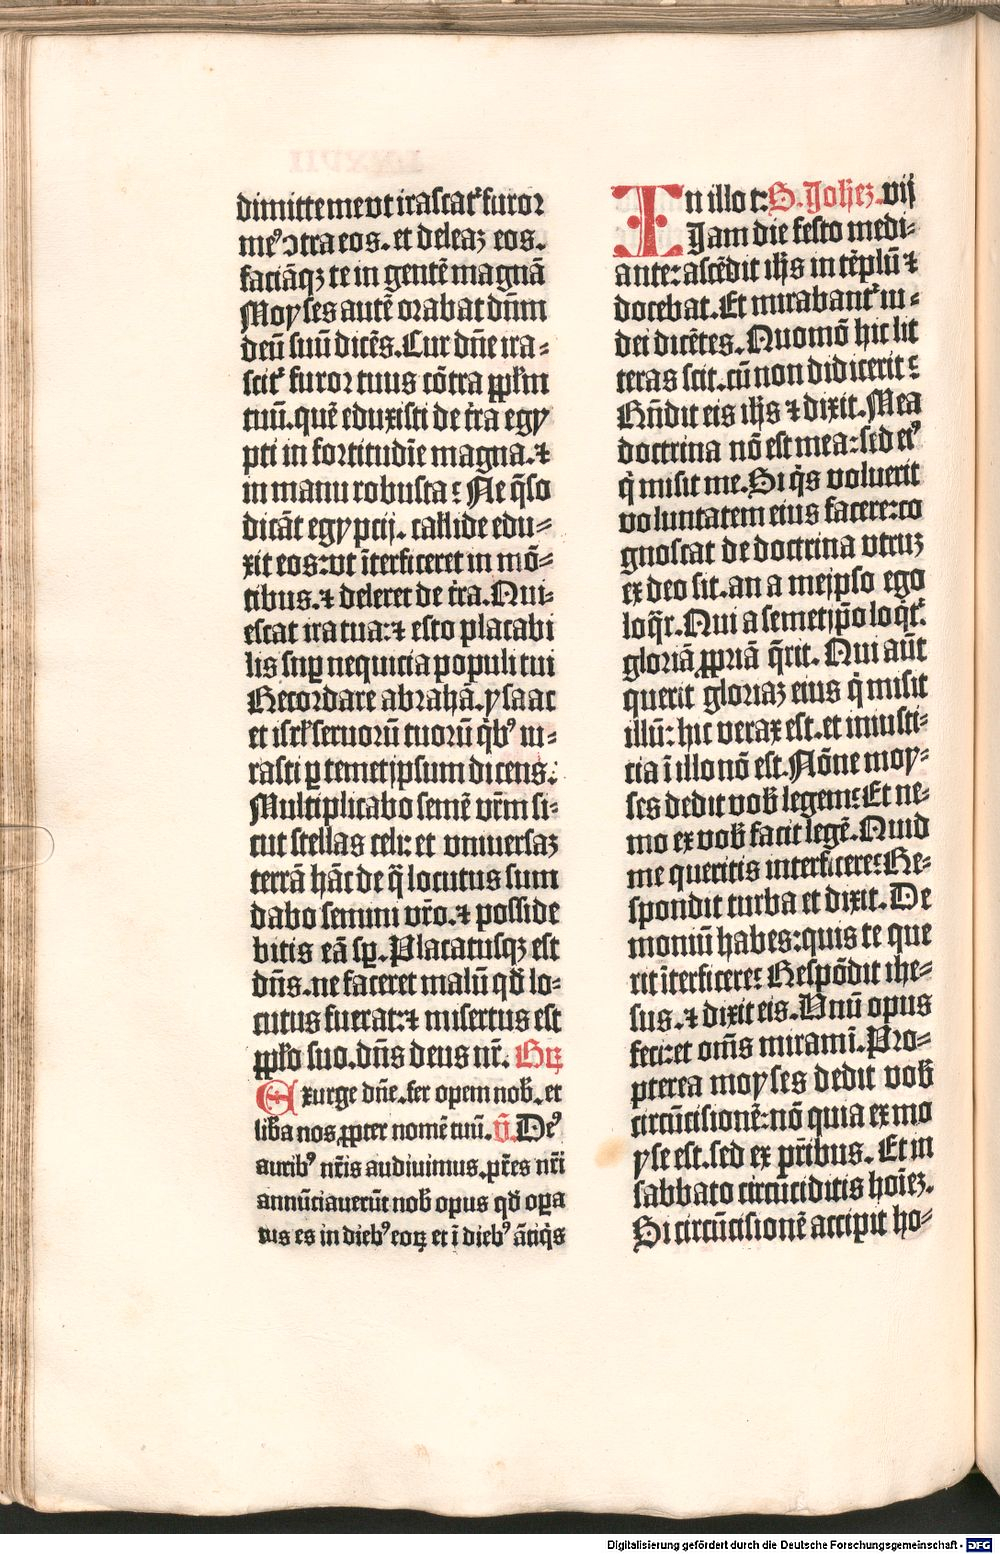 dimitte me vt irascat᷑ furor
meꝰ ↄtra eos. et deleaz eos.
faciāqz te in gentē magnā
Moyses autē orabat dn̄m
deū suū dicēs. Cur dn̄e ira⸗
scit᷑ furor tuus cōtra ꝓpl̄m
tuū. quē eduxisti de tr̄a egy
pti in fortitudīe magna. ⁊
in manu robusta: Ne q̄so
dicāt egyptij. callide edu⸗
xit eos: vt īterficeret in mō⸗
tibus. ⁊ deleret de tr̄a. Qui⸗
escat ira tua: ⁊ esto placabi
lis suꝑ nequicia populi tui
Recordare abrahā. ysaac
et isrl̄ seruorū tuorū q̄bꝰ iu⸗
rasti ꝑ temetipsum dicens:
Multiplicabo semē vr̄m si⸗
cut stellas celi: et vniuersaz
terrā hāc de q̄ locutus sum
dabo semini vr̄o. ⁊ posside
bitis eā sꝑ. Placatusqz est
dn̄s. ne faceret malū qd̄ lo⸗
cutus fuerat: ⁊ misertus est
ꝓpl̄o suo. dn̄s deus nr̄. Grꝝ
Exurge dn̄e. fer opem nob̄. et
lib̄a nos ꝓpter nomē tuū. v̄. Deꝰ
auribꝰ nr̄is audiuimus. pr̄es nr̄i
annūciauerūt nob̄ opus qd̄ oꝑa
tus es in diebꝰ eoꝝ et ī diebꝰ ātiq̄s
In illo t: S. Joh̄ez. vij
Jam die festo medi⸗
ante: ascēdit ih̄s in tēplū ⁊
docebat. Et mirabant᷑ iu⸗
dei dicētes. Quomō hic lit
teras scit. cū non didicerit:
Rn̄dit eis ih̄s ⁊ dixit. Mea
doctrina nō est mea: sed eiꝰ
q̄ misit me. Si q̄s voluerit
voluntatem eius facere: co
gnoscat de doctrina vtruz
ex deo sit. an a meipso ego
loq̄r. Qui a semetip̄o loq̄t᷑.
gloriā ꝓpriā q̄rit. Qui aūt
querit gloriaz eius q̄ misit
illū: hic verax est. et iniusti⸗
cia ī illo nō est. Nōne moy⸗
ses dedit vob̄ legem: Et ne⸗
mo ex vob̄ facit legē. Quid
me queritis interficere: Re⸗
spondit turba et dixit. De
moniū habes: quis te que
rit īterficere: Respōdit ihe⸗
sus. ⁊ dixit eis. Vnū opus
feci: et om̄s miramī. Pro⸗
pterea moyses dedit vob̄
circūcisionē: nō quia ex mo
yse est. sed ex pr̄ibus. Et in
sabbato circūciditis hoīez.
Si circūcisionē accipit ho⸗
Digitalisierung gefördert durch die Deutsche Forschungsgemeinschaft - DFG